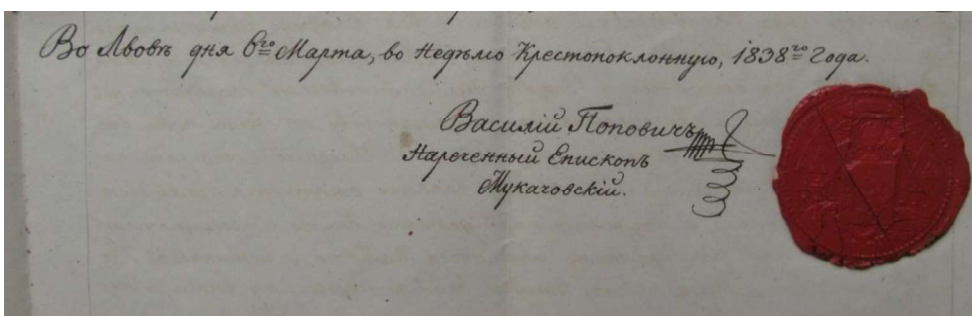 Во Львовѣ дня 6го Марта, во Недѣлю Крестопоклонную, 1838го Года.
Василій Поповичъ
Нареченный Епископъ
Мукачовскій.